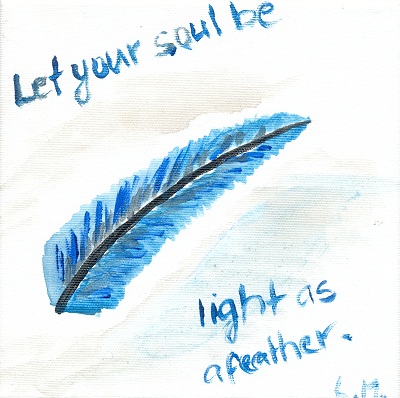 Let your soul be
light as
a feather.
L.M.